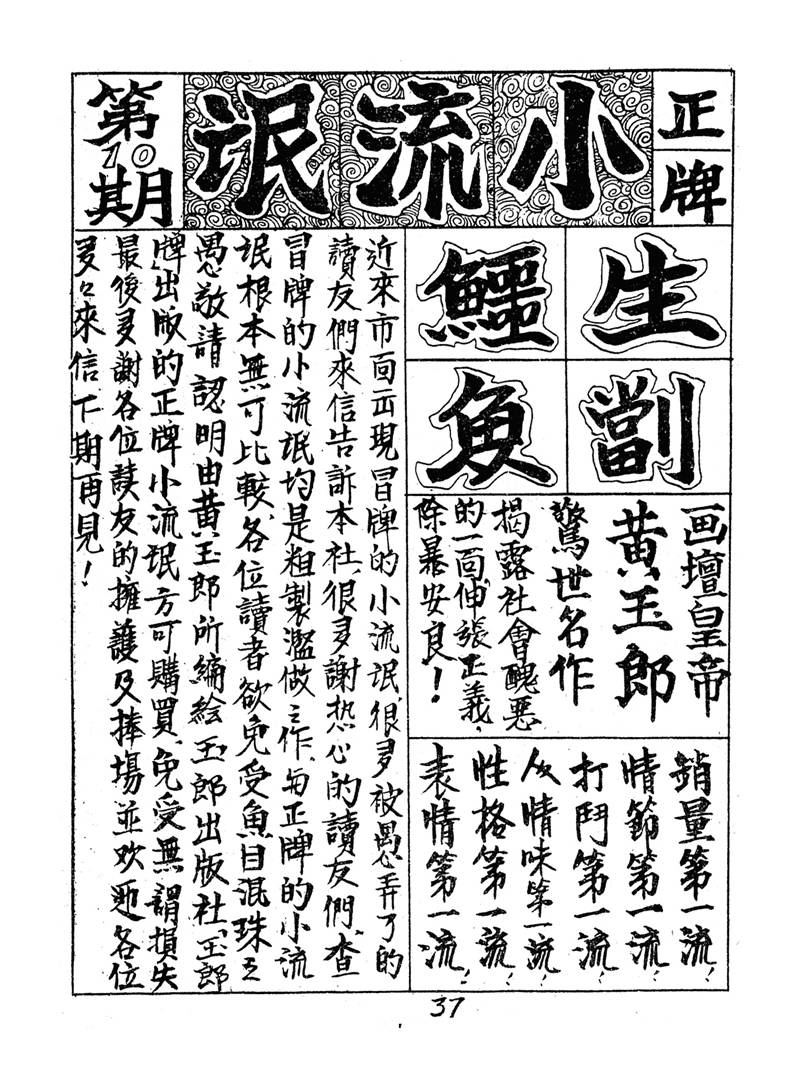 正牌
小流氓
第10期
生劏
鱷魚
画壇皇帝
黄玉郎
驚世名作
揭露社會醜惡
的一面伸張正義、
除暴安良！
銷量第一流！
情節第一流！
打鬥第一流！
人情味第一流！
性格第一流！
表情第一流！
近來市面出現冒牌的小流氓、很多被愚弄了的
讀友們來信告訴本社、很多謝热心的讀友們、查
冒牌的小流氓均是粗製濫做之作、与正牌的小流
氓根本無可比較、各位讀者欲免受魚目混珠之
愚、敬請認明由黄玉郎所編絵玉郎出版社、玉郎
牌出版的正牌小流氓方可購買、免受無謂損失
最後多謝各位讀友的擁護及捧場並欢迎各位
多々來信下期再見！
37